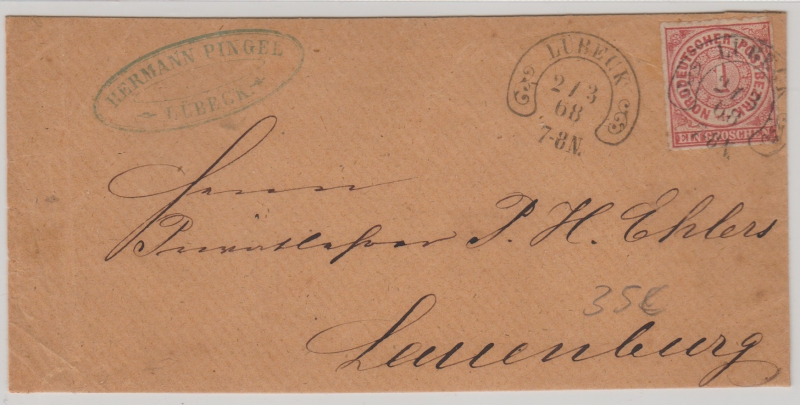 HERMANN PINGEL
LÜBECK
LÜBECK
21 3
68
7-8 N.
NORDDEUTSCHER POSTBEZIRK
1
EIN GROSCHEN
Herrn
Privatlehrer P. H. Ehlers
35€
Lauenburg